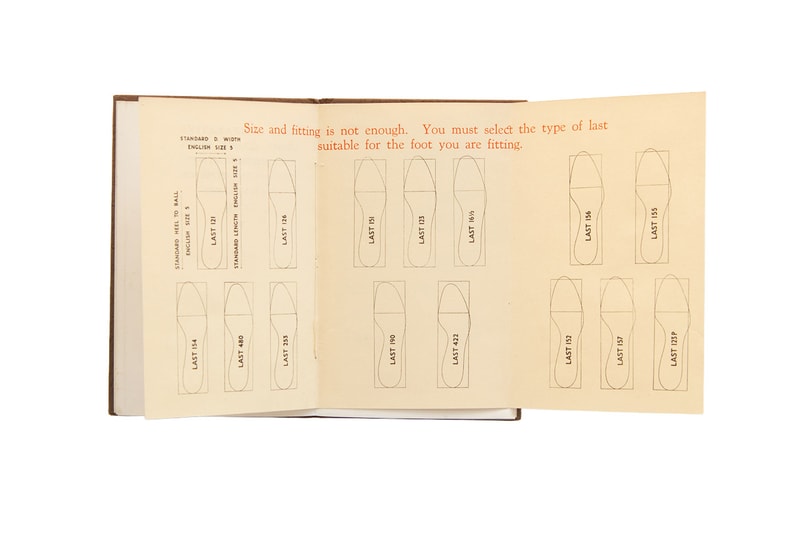 Size and fitting is not enough. You must select the type of last
suitable for the foot you are fitting.
STANDARD D. WIDTH
ENGLISH SIZE 5
STANDARD HEEL TO BALL
ENGLISH SIZE 5
LAST 121
STANDARD LENGTH ENGLISH SIZE 5
LAST 126
LAST 151
LAST 123
LAST 16½
LAST 156
LAST 155
LAST 154
LAST 480
LAST 253
LAST 190
LAST 422
LAST 152
LAST 157
LAST 123P